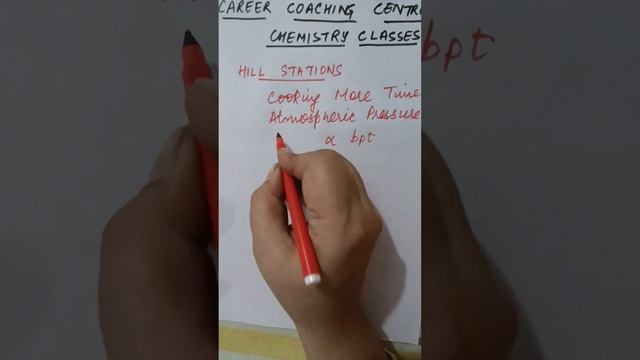 CAREER COACHING CENTR
CHEMISTRY CLASSES
HILL STATIONS
Cooking More Time
Atmospheric Pressure
α bpt
bpt